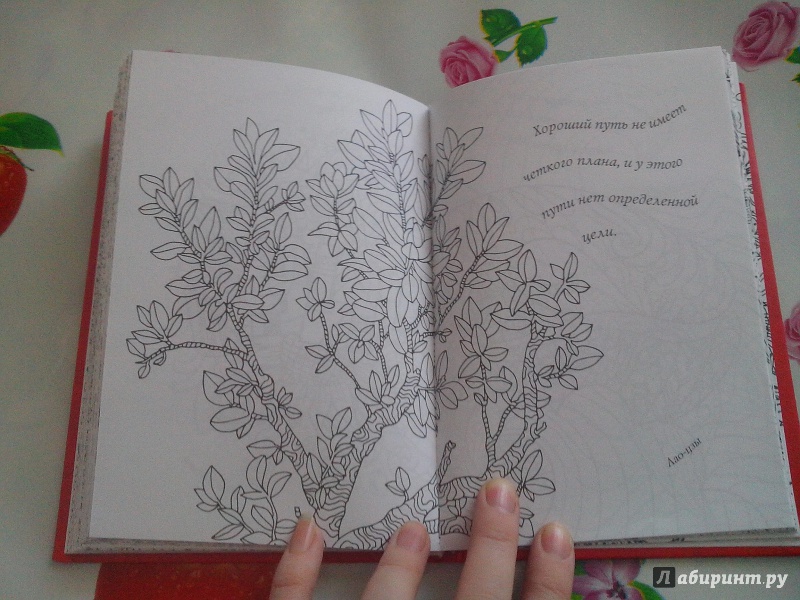 Хороший путь не имеет
четкого плана, и у этого
пути нет определенной
цели.
Лао-цзы
Лабиринт.ру